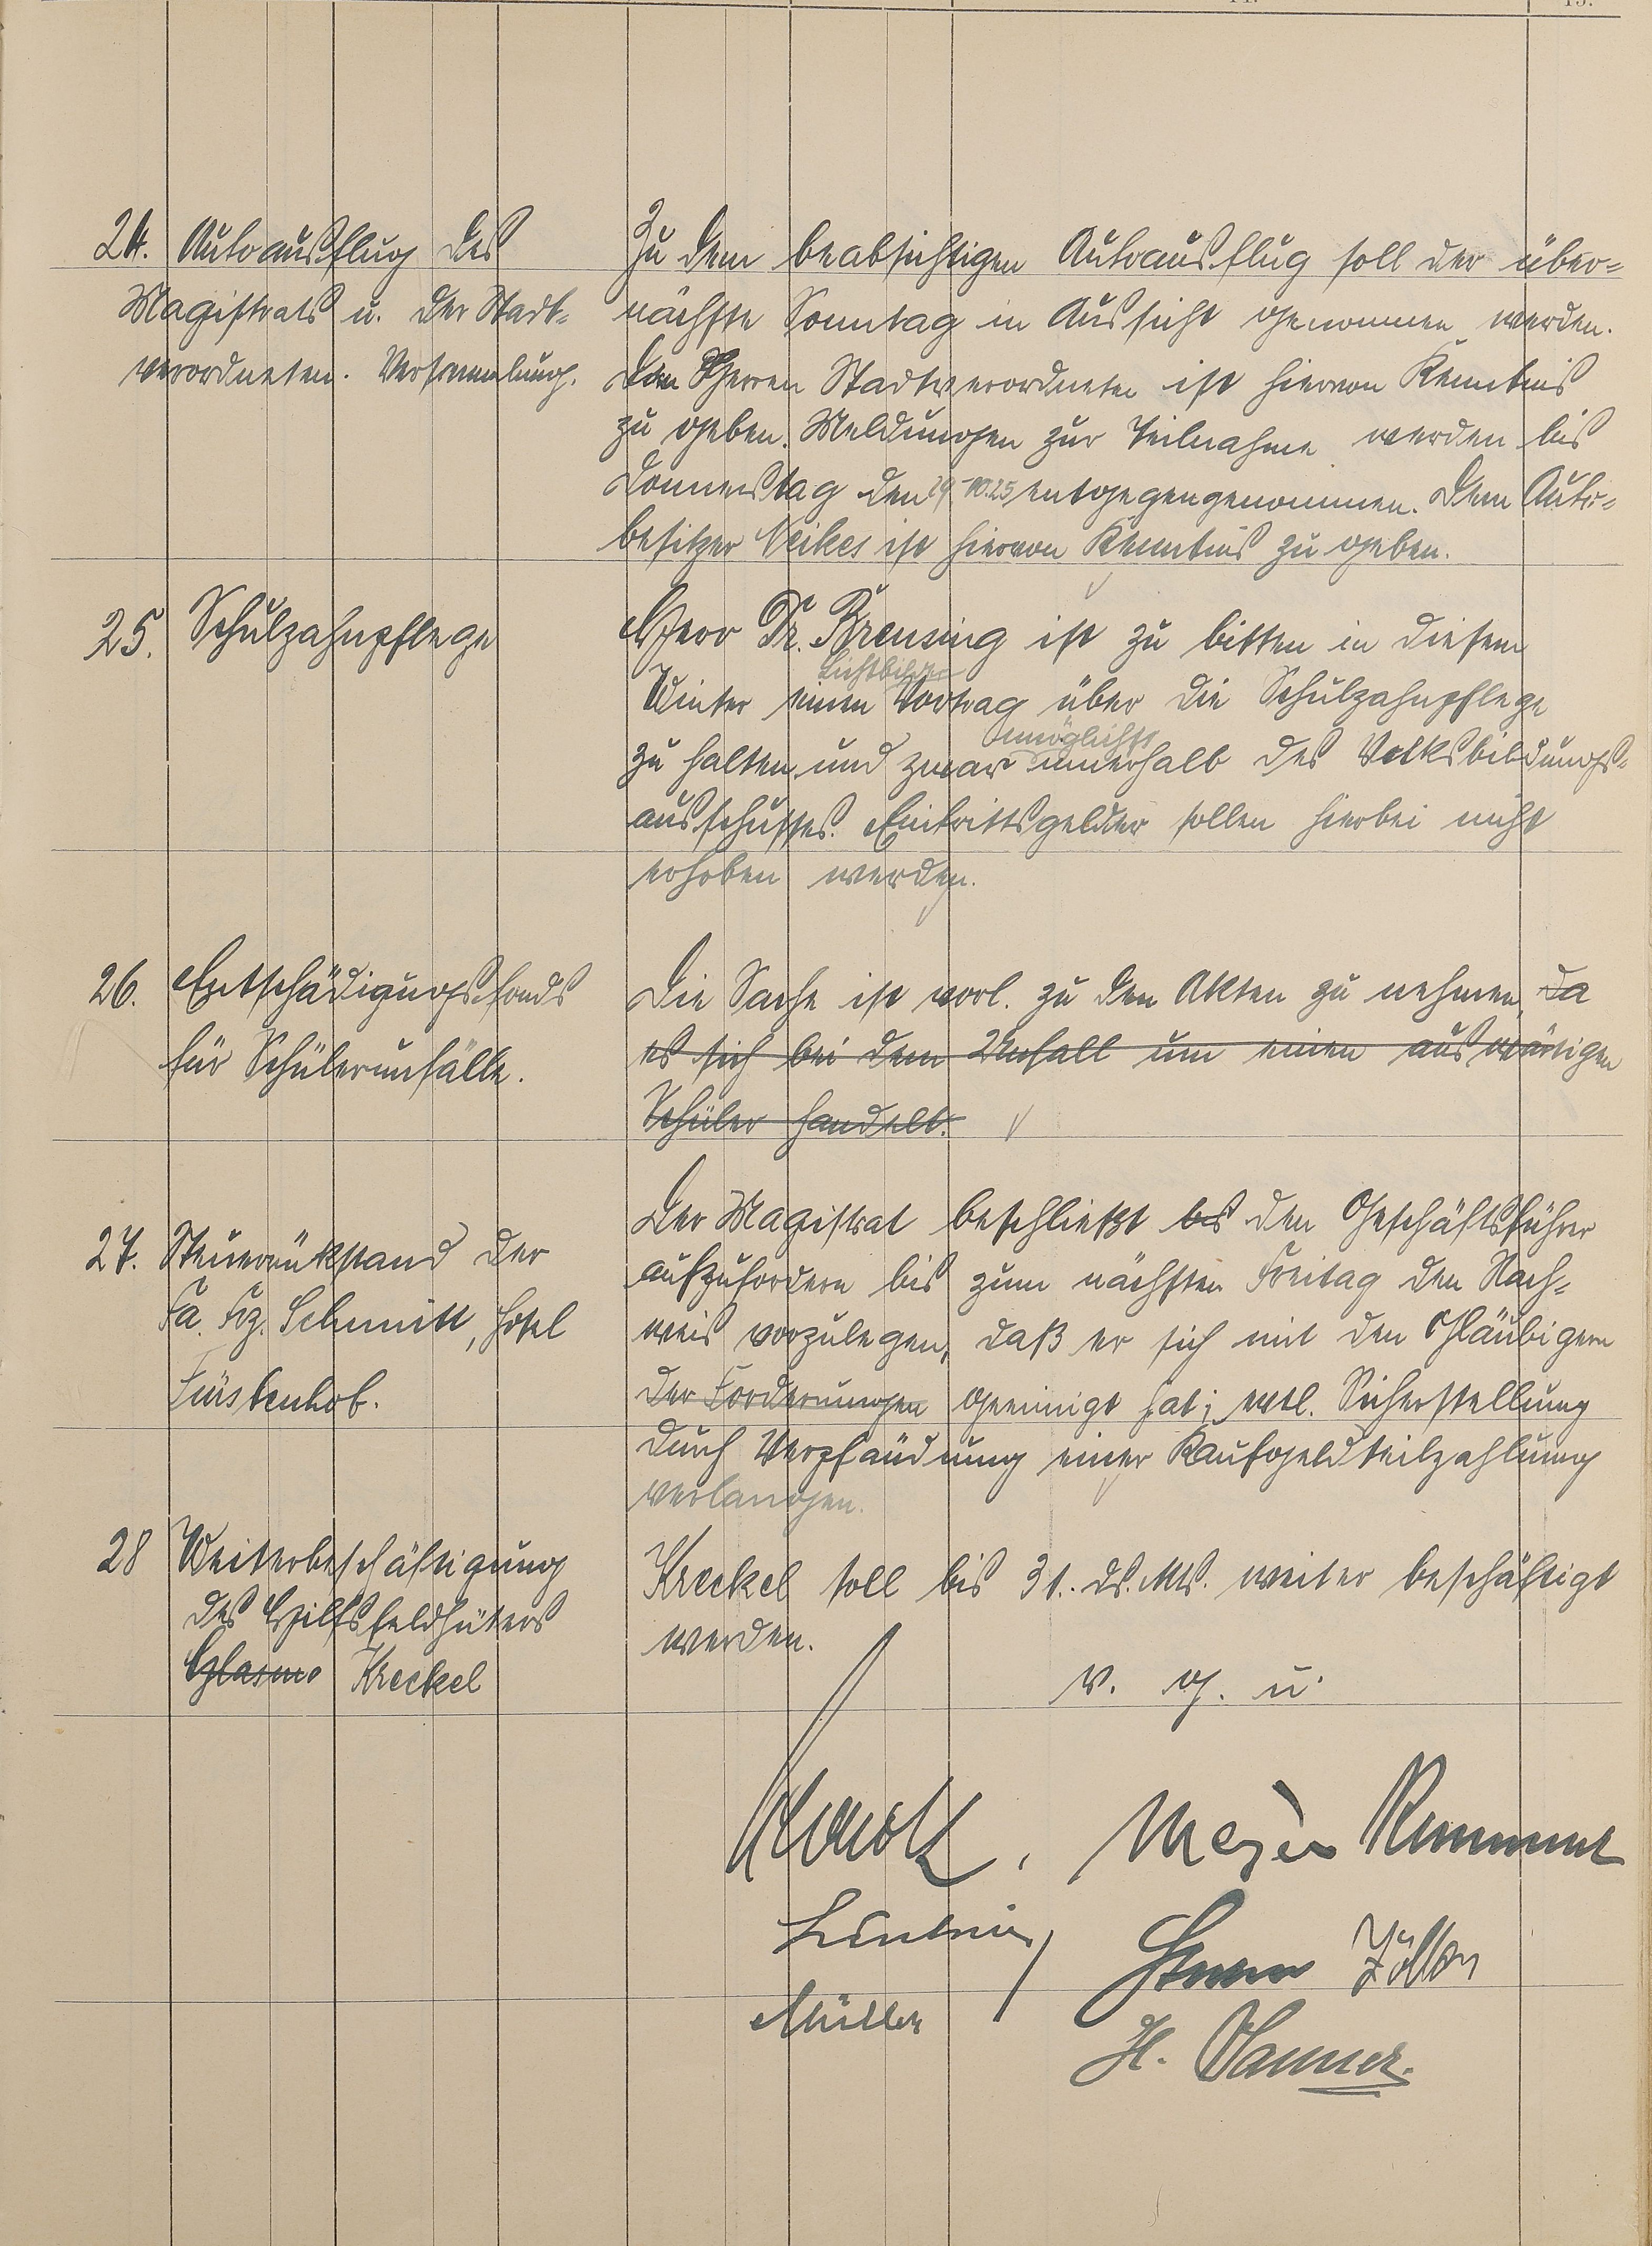 24. Autoausflug des
Magistrats u. der Stadt-
verordneten-Versammlung.
Zu dem beabsichtigen Autoausflug soll der über-
nächste Sonntag in Aussicht genommen werden.
Den Herren Stadtverordneten ist hiervon Kenntnis
zu geben. Meldungen zur Teilnahme werden bis
Donnerstag den 29.10.25 entgegengenommen. Dem Auto-
besitzer Neikes ist hiervon Kenntnis zu geben.
25. Schulzahnpflege
Herr Dr. Brensing ist zu bitten in diesem
Lichtbilder
Winter einen Vortrag über die Schulzahnpflege
möglichst
zu halten und zwar innerhalb des Volksbildungs-
ausschusses. Eintrittsgelder sollen hierbei nicht
erhoben werden.
26. Entschädigungsfonds
für Schülerunfälle.
Die Sache ist vorl. zu den Akten zu nehmen, da
es sich bei dem Unfall um einen auswärtigen
Schüler handelt.
27. Steuerrükstand der
Fa. Frz. Schmitt, Hotel
Fürstenhof.
Der Magistrat beschließt bis den Geschäftsführer
aufzufordern bis zum nächsten Freitag den Nach-
weis vorzulegen, daß er sich mit den Gläubigern
der Forderungen geeinigt hat; evtl. Sicherstellung
durch Verpfändung einer Kaufgeldteilzahlung
verlangen.
28 Weiterbeschäftigung
des Hilfsfeldhüters
Kreckel
Kreckel soll bis 31. ds. Mts. weiter beschäftigt
werden.
v. g. u.
Meyer
Müller